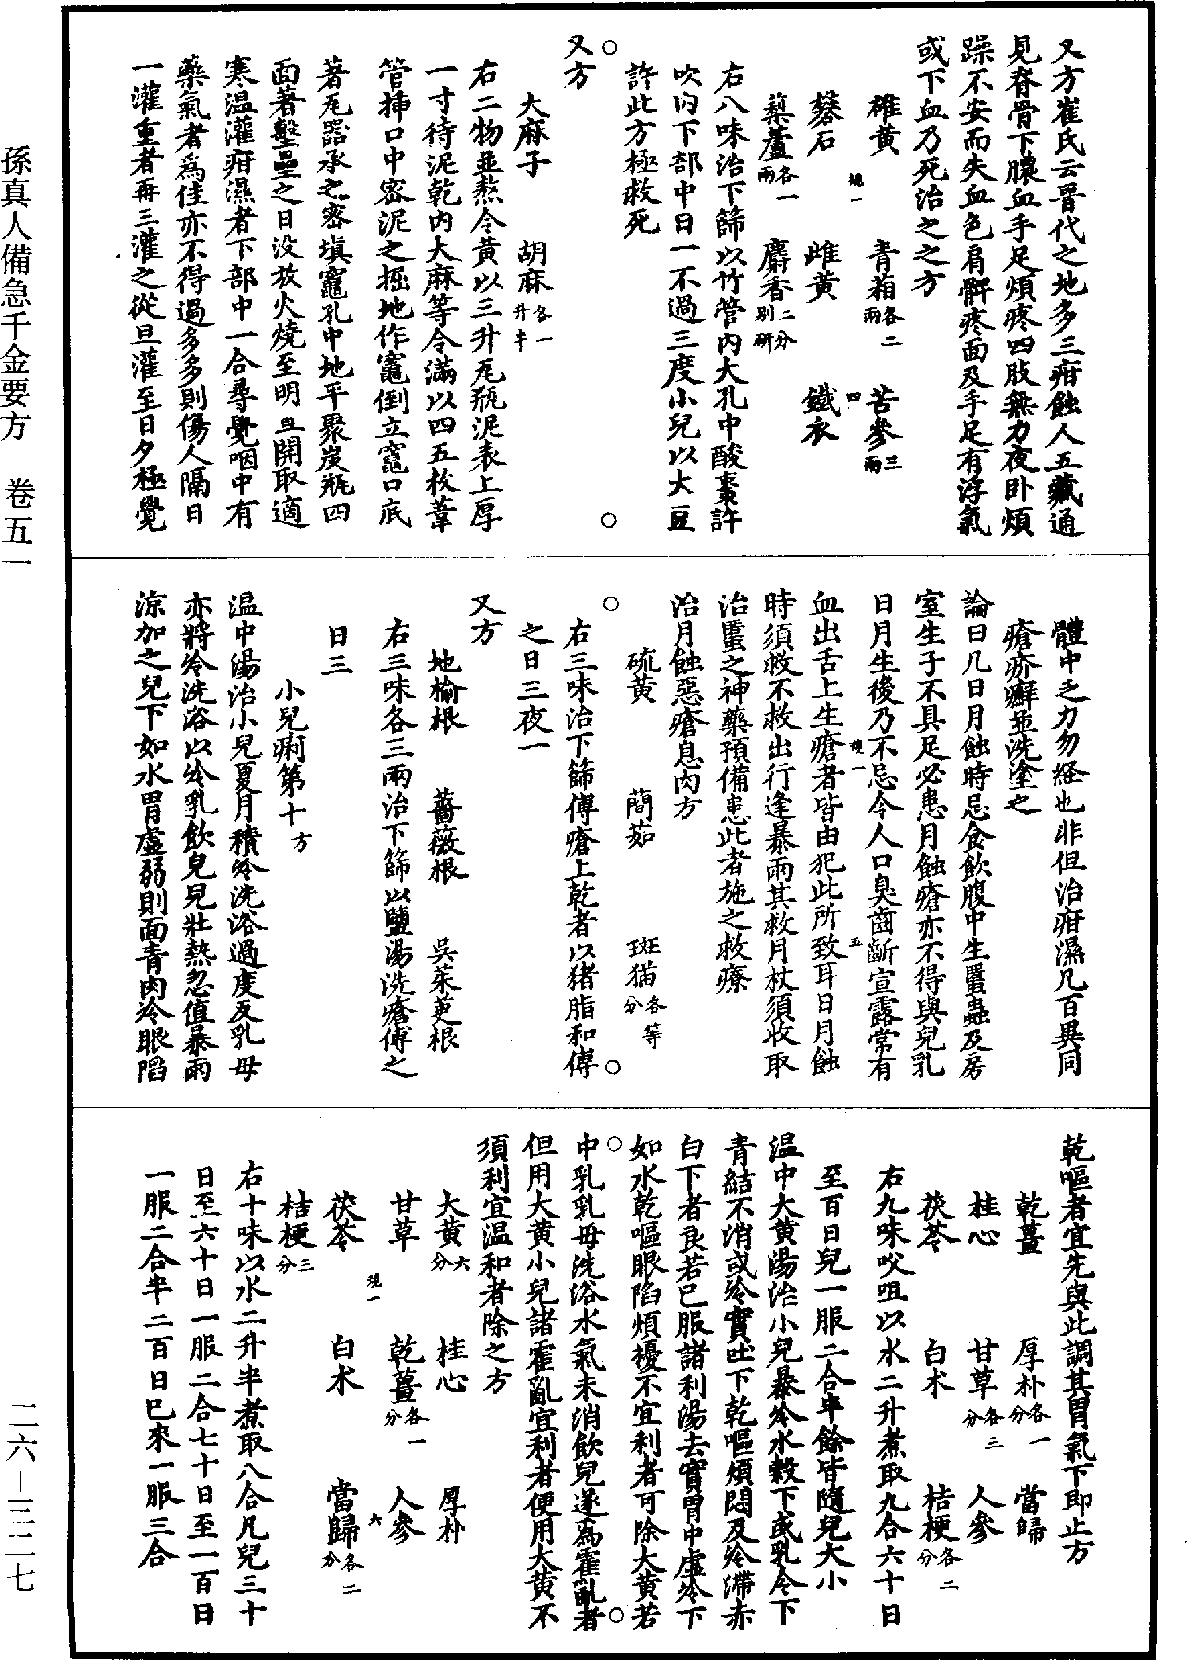 又方崔氏云晉代之地多三疳蝕人五藏通
見脊骨下膿血手足煩疼四肢無力夜卧煩
躁不安而失血色肩髀疼面及手足有浮氣
或下血乃死治之之方
雄黃 青葙各二兩 苦參三兩
礬石 雌黃 鐵衣
藜蘆各一兩 麝香二分別研
右八味治下篩以竹管內大孔中酸棗許
吹內下部中日一不過三度小兒以大豆
許此方極救死
又方
大麻子 胡麻各一升半
右二物並熬令黃以三升瓦瓶泥表上厚
一寸待泥乾內大麻等令滿以四五枚葦
管揷口中密泥之掘地作竈倒立竈口底
著瓦器承之密塡竈孔中地平聚炭瓶四
面著墼壘之日没放火燒至明旦開取適
寒温灌疳濕者下部中一合尋覺咽中有
藥氣者爲佳亦不得過多多則傷人隔日
一灌重者再三灌之從旦灌至日夕極覺
體中乏力勿経也非但治疳濕凡百異同
瘡疥癬並洗塗之
論曰凡日月蝕時忌食飲腹中生䘌蟲及房
室生子不具足必患月蝕瘡亦不得與兒乳
日月生後乃不忌令人口臭齒齗宣露常有
血出舌上生瘡者皆由犯此所致耳日月蝕
時須救不救出行逢暴雨其救月杖須收取
治䘌之神藥預備患此者施之救療
治月蝕惡瘡息肉方
硫黃 䕡茹 斑猫各等分
右三味治下篩傅瘡上乾者以猪脂和傅
之日三夜一
又方
地榆根 薔薇根 吳茱萸根
右三味各三兩治下篩以鹽湯洗瘡傅之
日三
小兒痢第十 方
温中湯治小兒夏月積冷洗浴過度及乳母
亦將冷洗浴以冷乳飲兒兒壯熱忽值暴雨
涼加之兒下如水胃虛弱則面青肉冷眼陷
乾嘔者宜先與此調其胃氣下即止方
乾薑 厚朴各一分 當歸
桂心 甘草各三分 人參
茯苓 白术 桔梗各二分
右九味㕮咀以水二升煮取九合六十日
至百日兒一服二合半餘皆隨兒大小
温中大黃湯治小兒暴冷水穀下或乳冷下
青結不消或冷實吐下乾嘔煩悶及冷滯赤
白下者良若已服諸利湯去實胃中虛冷下
如水乾嘔眼陷煩擾不宜利者可除大黃若
中乳乳母洗浴水氣未消飲兒遂為霍亂者
但用大黃小兒諸霍亂宜利者便用大黃不
須利宜温和者除之方
大黃六分 桂心 厚朴
甘草 乾薑各一分 人參
茯苓 白术 當歸各二分
桔梗三分
右十味以水二升半煮取八合凡兒三十
日至六十日一服二合七十日至一百日
一服二合半二百日已來一服三合
孫真人備急千金要方 卷五一
二六—三二七